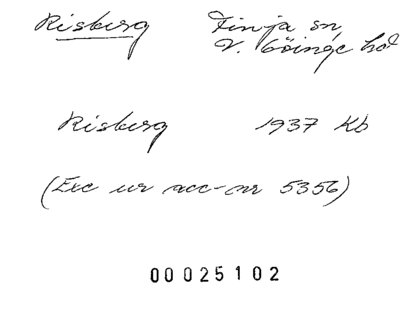 Risberg Finja sn,
V. Göinge hd
Risberg 1937 Kb
(Exc ur acc-nr 5356)
00025102